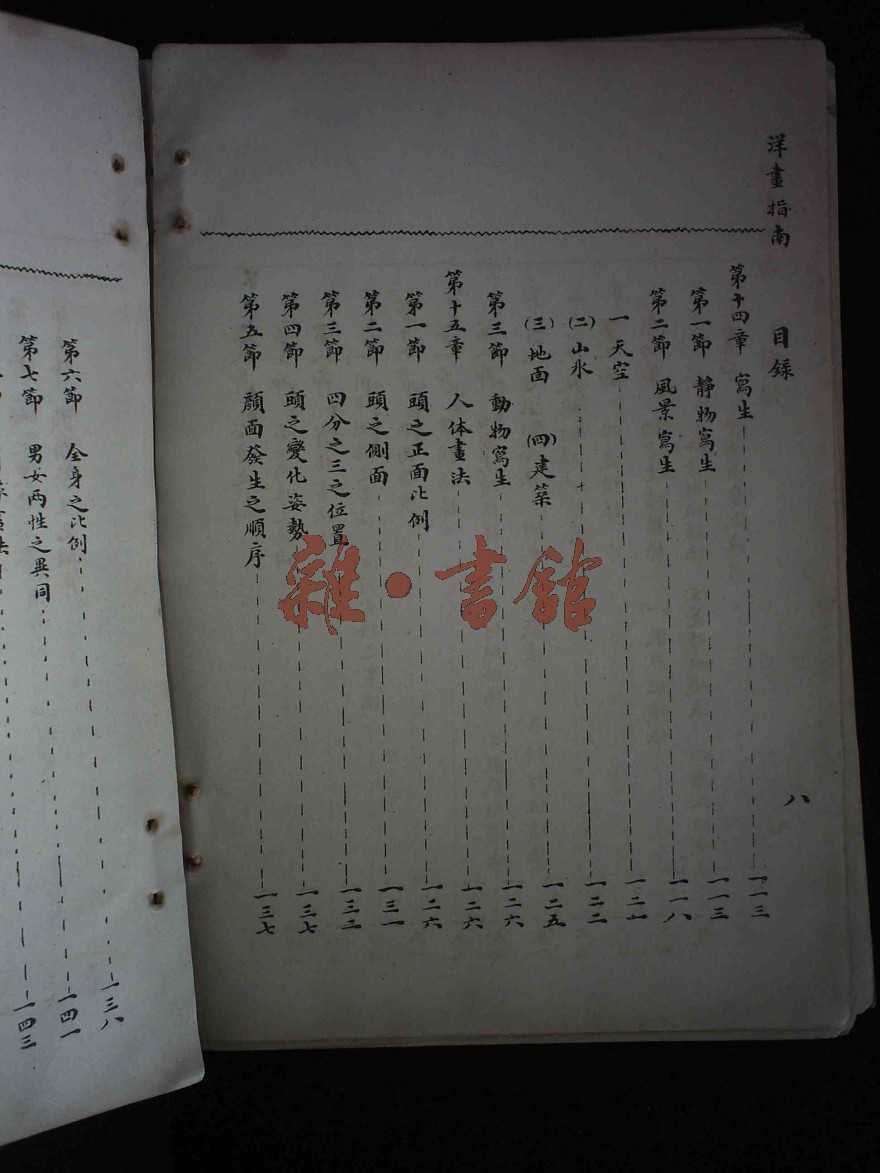 洋畫指南
目錄
八
第十四章 寫生 一一三
第一節 靜物寫生 一一三
第二節 風景寫生 一一八
一 天空 一二一
(二) 山水 一二二
(三) 地面 (四) 建築 一二五
第三節 動物寫生 一二六
第十五章 人体畫法 一二六
第一節 頭之正面比例 一二六
第二節 頭之側面 一三一
第三節 四分之三之位置 一三二
第四節 頭之變化姿勢 一三七
第五節 顏面發生之順序 一三七
第六節 全身之比例 一三八
第七節 男女兩性之異同 一四一
一四三
雜·書館